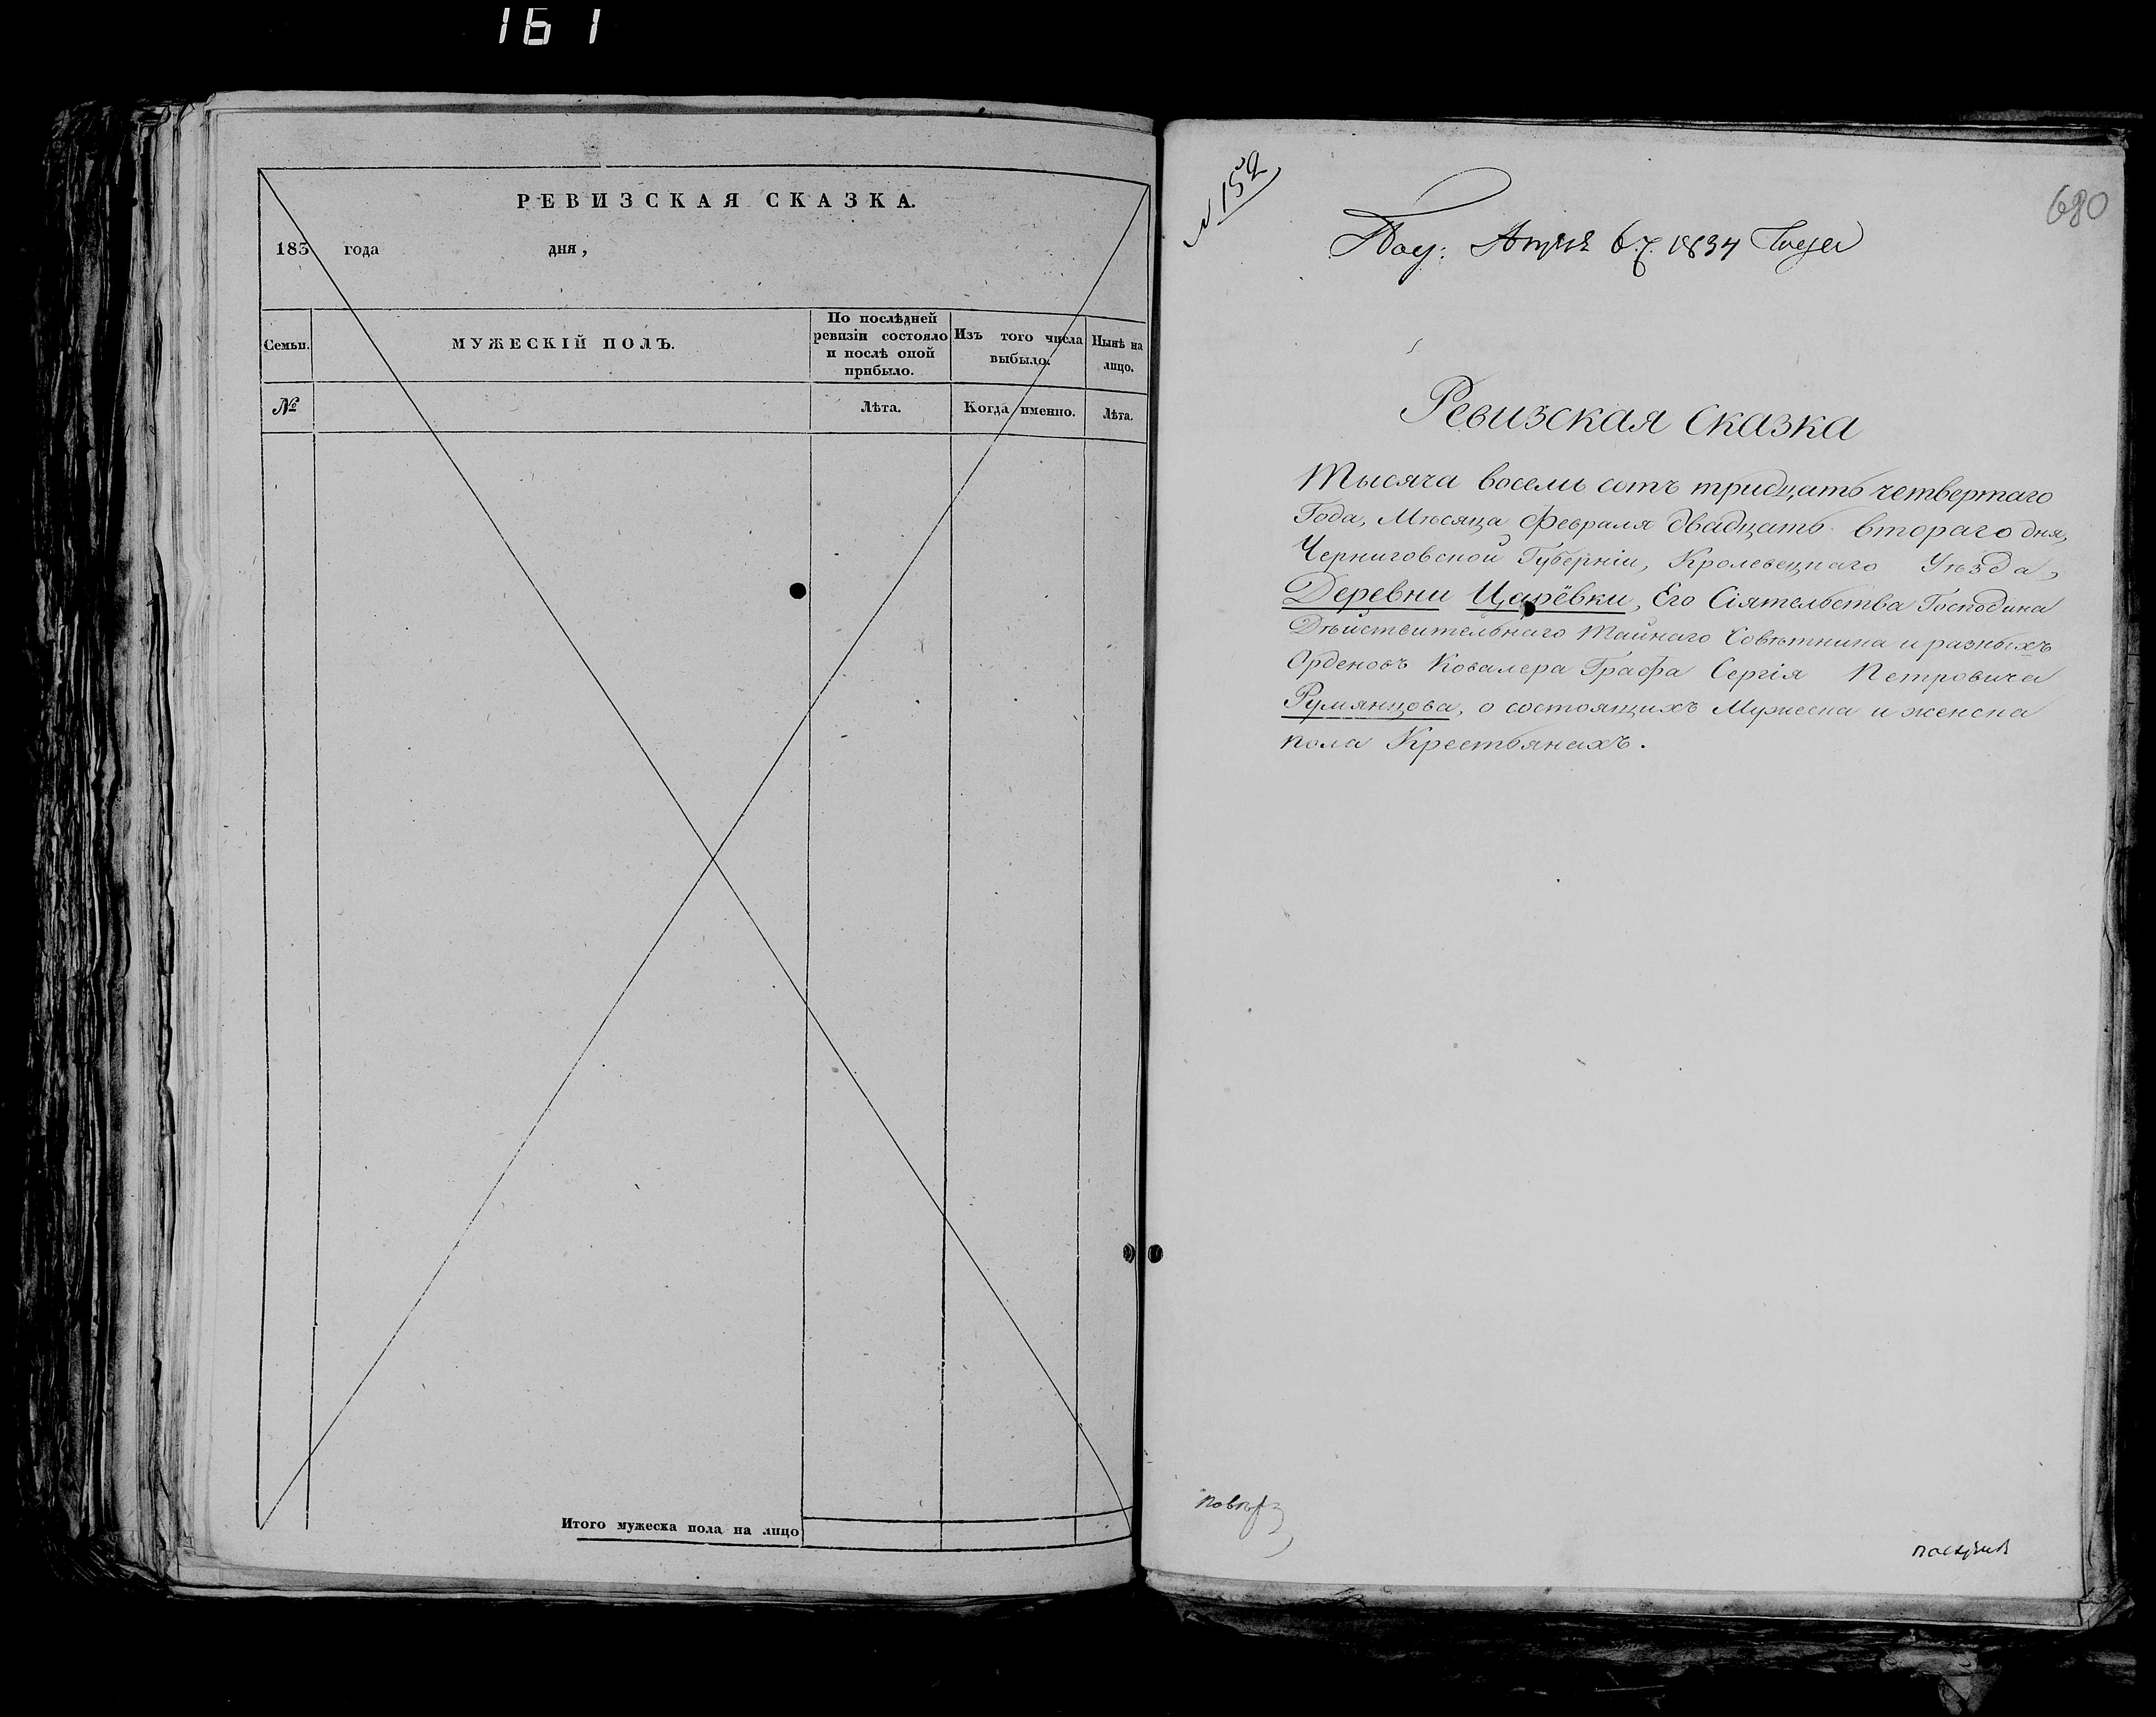 161
РЕВИЗСКАЯ СКАЗКА.
183 года дня,
Семьи.
МУЖЕСКІЙ ПОЛЪ.
По послѣдней ревизіи состояло и послѣ оной прибыло.
Изъ того числа выбыло.
Нынѣ на лицо.
№
Лѣта.
Когда именно.
Лѣта.
Итого мужеска пола на лицо
N 152
680
1834
Ревизская Сказка
Тысяча восемь сотъ тридцать четвертаго
Года, Мѣсяца Февраля двадцать втораго дня,
Черниговской Губерніи, Кролевецкаго Уѣзда,
Деревни Царёвки, Его Сіятельства Господина
Дѣйствительнаго Тайнаго Совѣтника и разныхъ
Орденовъ Ковалера Графа Сергія Петровича
Румянцова, о состоящихъ Мужеска и женска
пола Крестьянахъ.